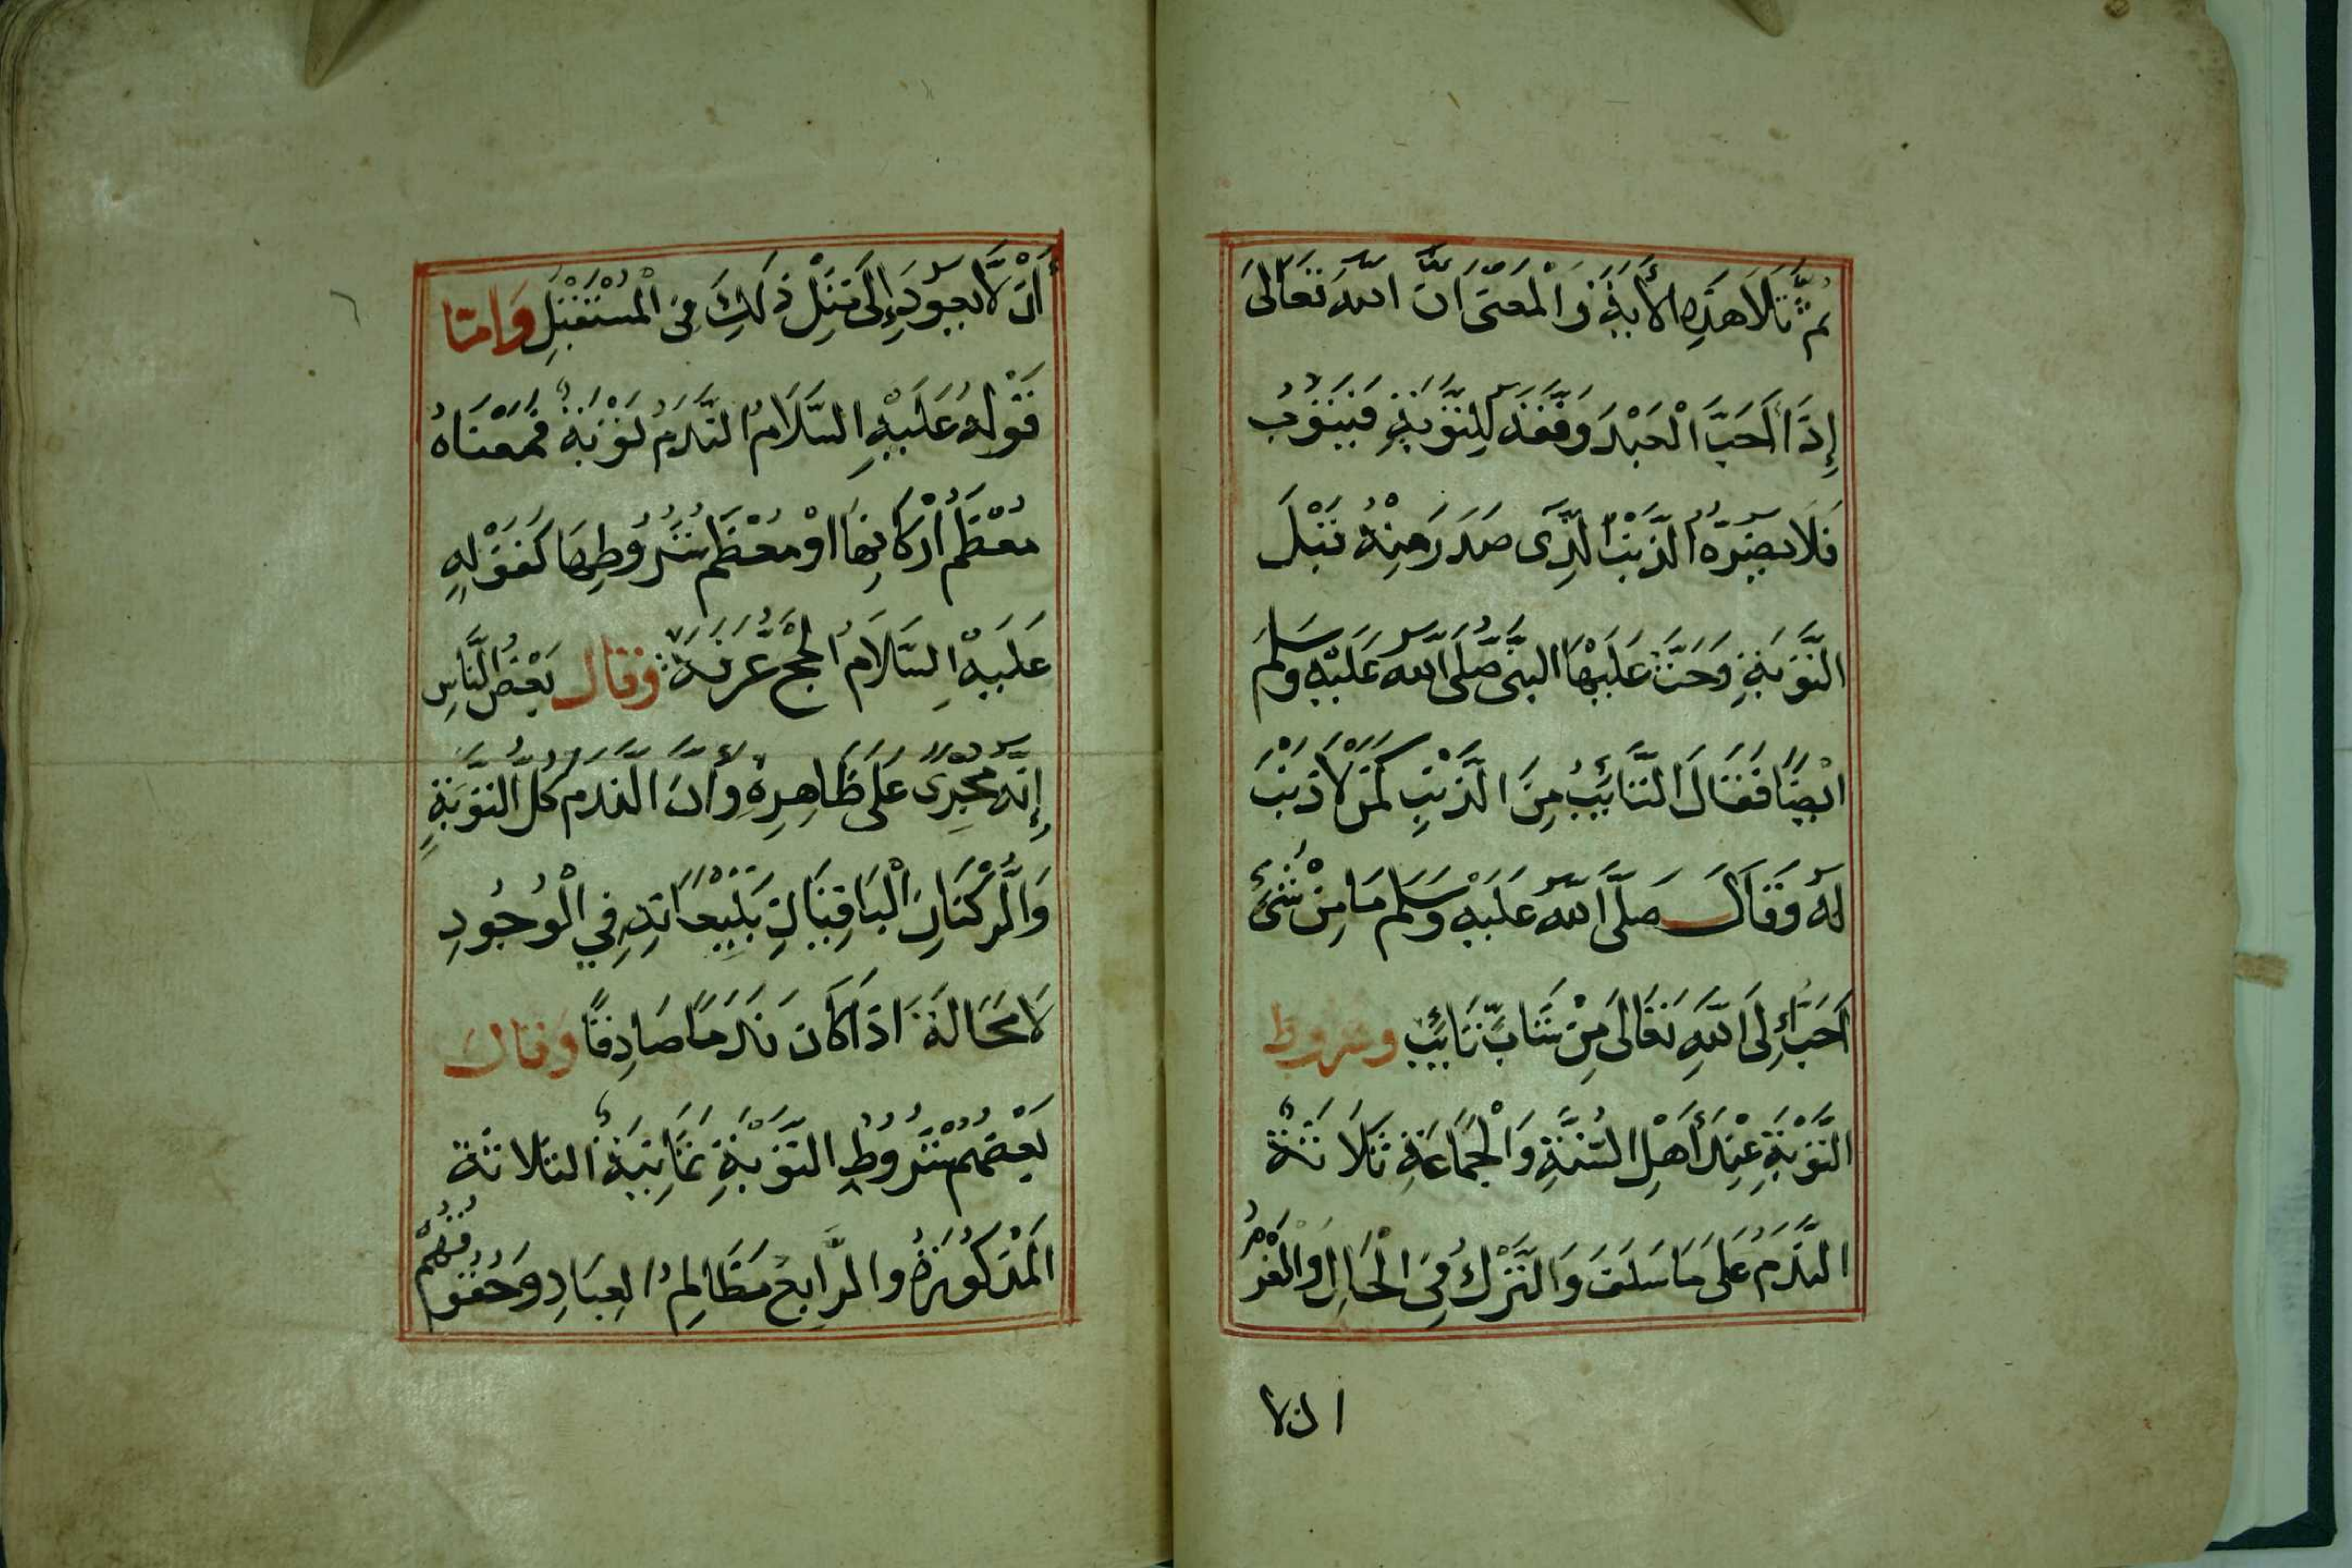 ثُمَّ تَلَا هَذِهِ الْأَيَةَ وَالْمَعْنَى اَنَّ اللّٰهَ تَعَالَى
إِذَا أَحَبَّ الْعَبْدَ وَفَّقَهُ لِلتَّوْبَةِ فَيَتُوبُ
فَلَا يَضُرُّهُ الذَّنْبُ الَّذِى صَدَرَ مِنْهُ قَبْلَ
التَّوْبَةِ وَحَثَّ عَلَيْهَا النَّبِىُّ صَلَّى اللّٰهُ عَلَيْهِ وَسَلَّمَ
اَيْضًا فَقَالَ التَّائِبُ مِنَ الذَّنْبِ كَمَنْ لَا ذَنْبَ
لَهُ وَقَالَ صَلَّى اللّٰهُ عَلَيْهِ وَسَلَّمَ مَا مِنْ شَىْءٍ
اَحَبَّ إِلَى اللّٰهِ تَعَالَى مِنْ شَابٍّ تَائِبٍ وشروط
التَّوْبَةِ عِنْدَ أَهْلِ السُّنَّةِ وَالْجَمَاعَةِ ثَلَاثَةٌ
النَّدَمُ عَلَى مَا سَلَفَ وَالتَّرْكُ فِى الْحَالِ وَالْعَزْمُ
ان لا
أَنْ لَّا يَعُودَ إِلَى مِثْلِ ذَلِكَ فِى الْمُسْتَقْبَلِ وَامّا
قَوْلُهُ عَلَيْهِ السَّلَامُ النَّدَمُ تَوْبَةٌ فَمَعْنَاهُ
مُعْظَمُ أَرْكَانِهَا اَوْ مُعْظَمُ شُرُوطِهَا كَقَوْلِهِ
عَلَيْهِ السَّلَامُ الْحَجُّ عَرَفَةُ وقال بَعْضُ النَّاسِ
إِنَّهُ مُجْرًى عَلَى ظَاهِرِهِ وَأَنَّ النَّدَمَ كُلُّ التَّوْبَةِ
وَالرُّكْنَانِ الْبَاقِيَانِ يَتْبَعَانِهِ فِي الْوُجُودِ
لَا مَحَالَةَ اِذَا كَانَ نَدَمًا صَادِقًا وَقالَ
بَعْضُهُمْ شُرُوطُ التَّوْبَةِ ثَمَانِيَةٌ الثَّلَاثَةُ
الْمَذْكُورَةُ وَالرَّابِعُ مَظَالِمُ الْعِبَادِ وَحُقُوقُهُمْ